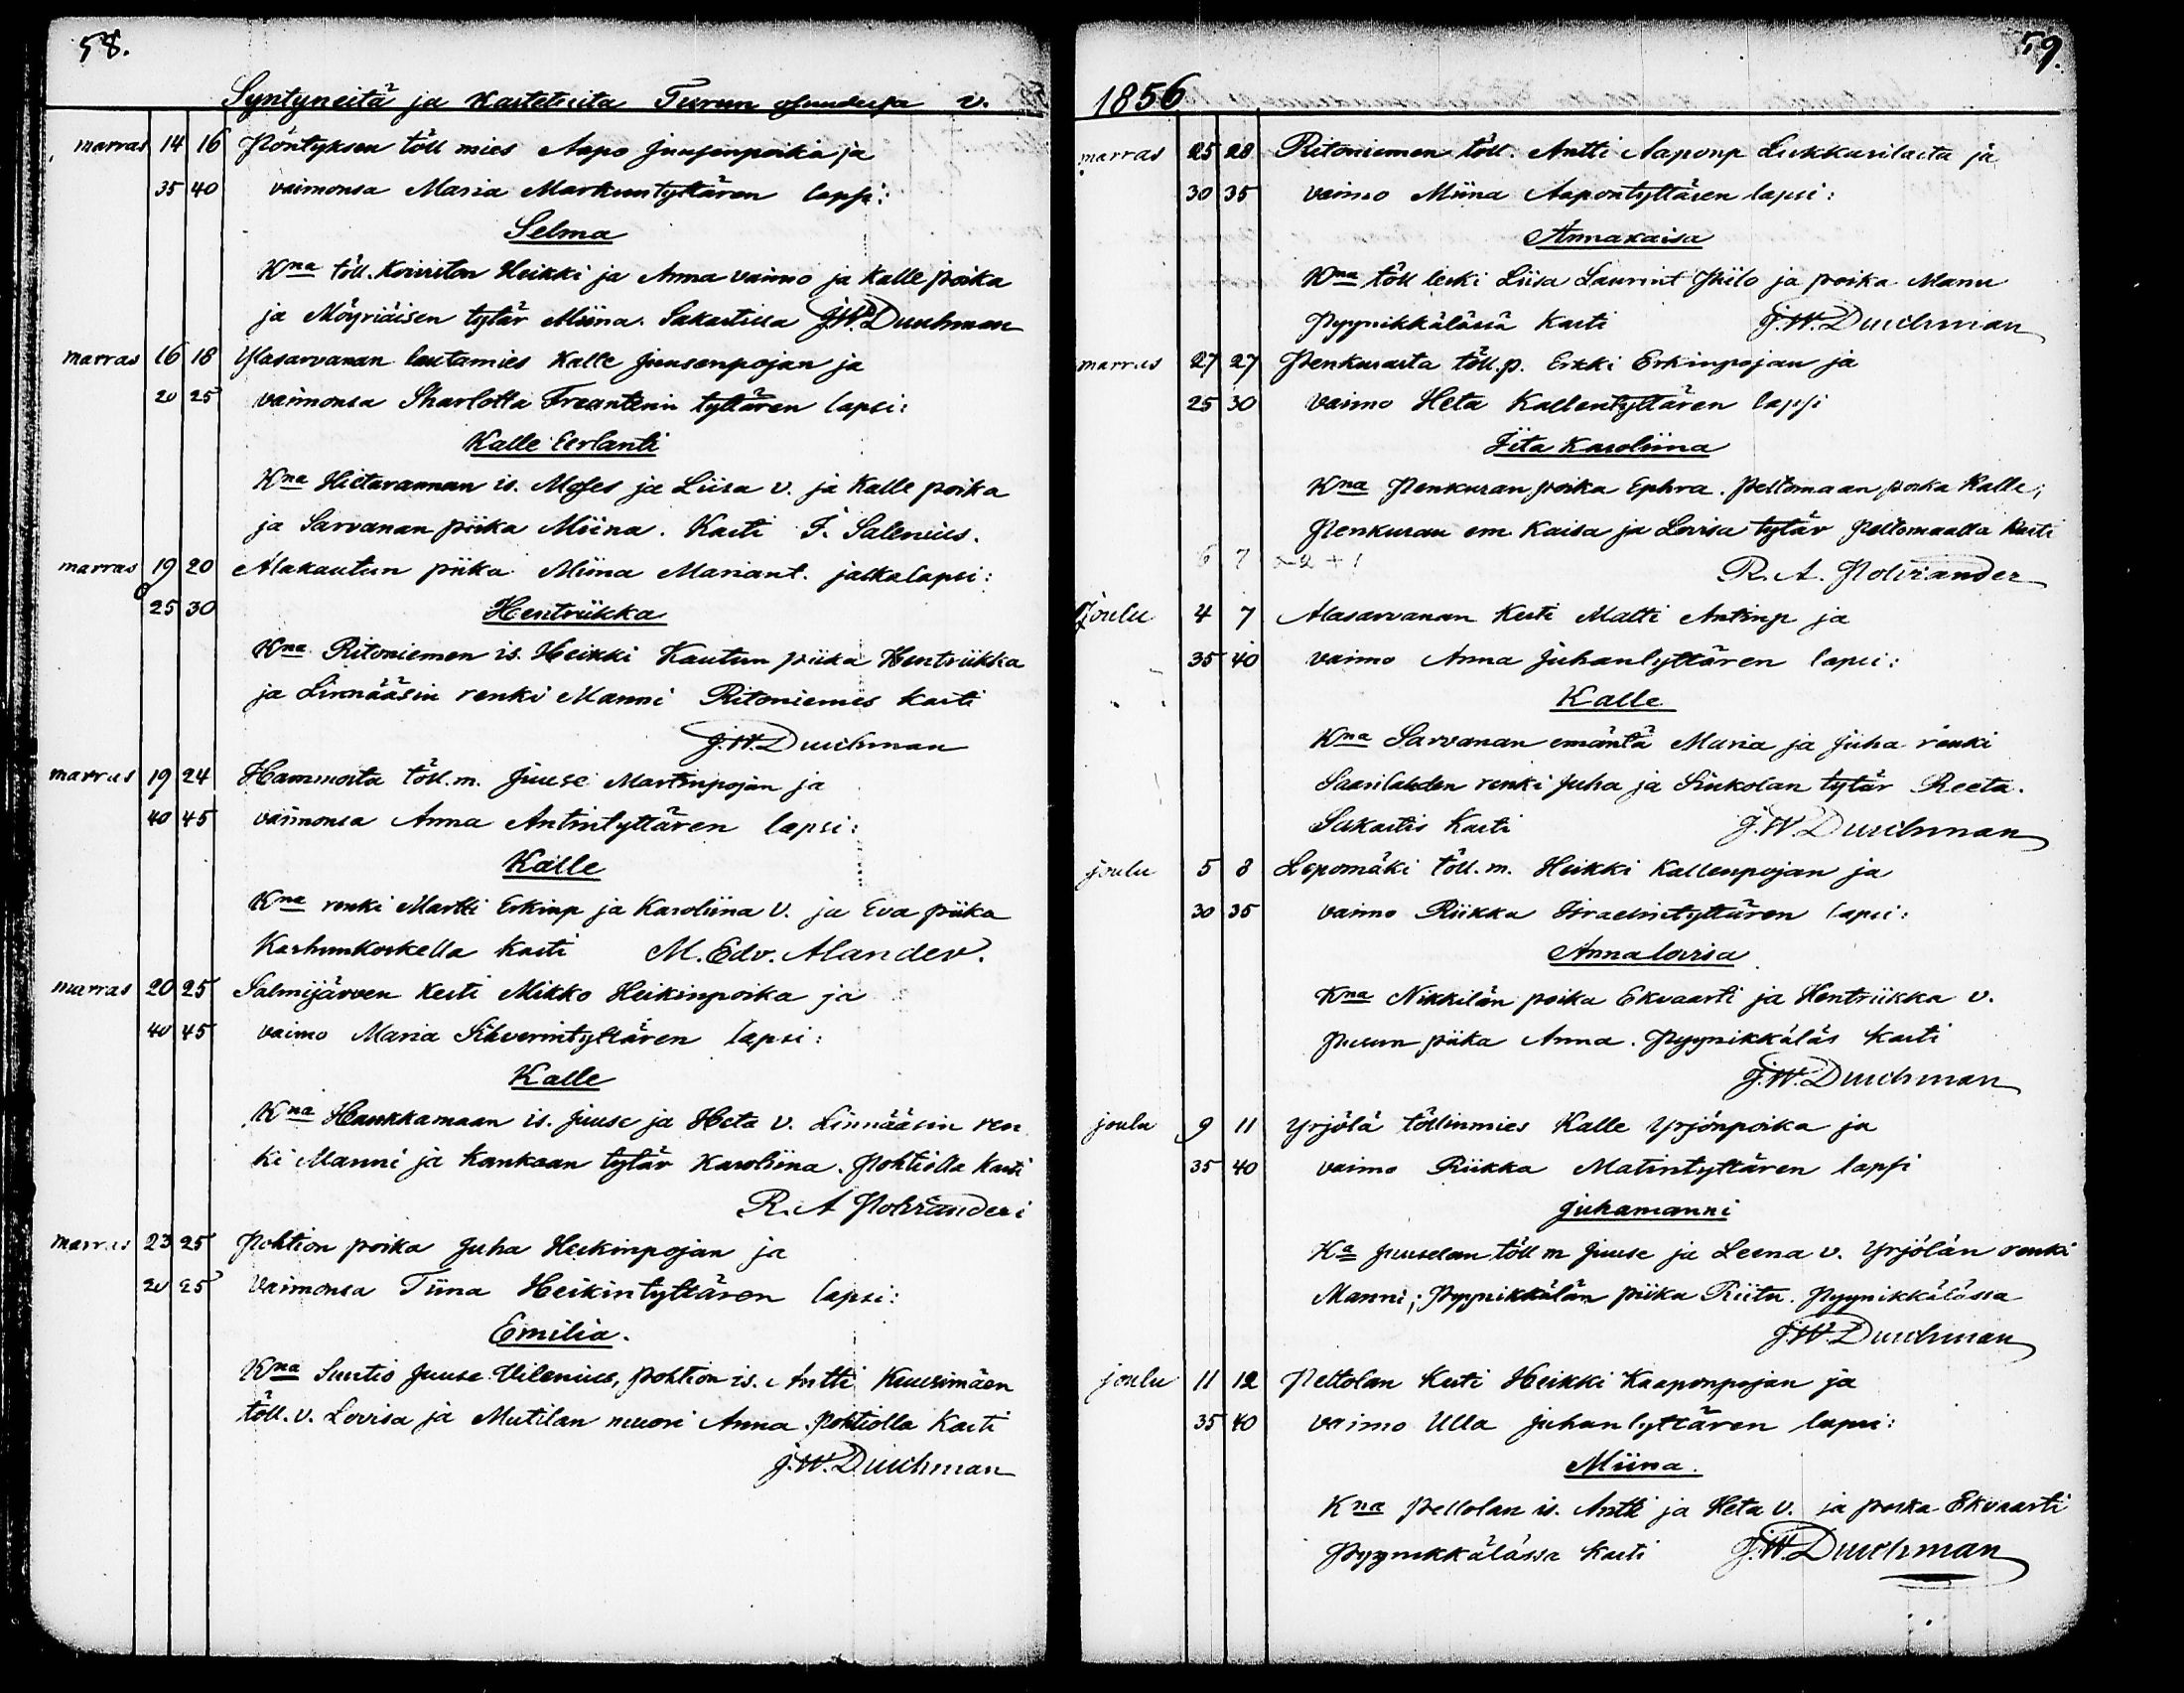 58.
Syntyneitä ja Kastetuita Turun osuudessa v.
marras 14 16 Pöntyksen töll mies Aapo Juusenpoika ja
35 40 vaimonsa Maria Markuntyttären lapsi:
Selma
Kna töll. Heikki ja Anna vaimo ja Kalle poika
ja Möyriäisen tytär Miina. Sakastissa J.W. Duuhman
marras 16 18 Ylasarvanan lautamies Kalle Juusenpojan ja
20 25 vaimonsa Sharlotta Freantinin tyttären lapsi:
Kalle Eerlanti
Kna Hietarannan is. Moses ja Liisa v. ja Kalle poika
ja Sarvanan piika Miina. Kasti F. Salenius.
marras 19 20 Alakautun piika Miina Mariant. jalkalapsi:
25 30 Hentriikka
Kna Ritoniemen is. Heikki Kautun piika Hentriikka
ja Linnääsin renki Manni Ritoniemis kasti
J.W. Duuhman
marras 19 24 Hammosta töll.m. Juuse Martinpojan ja
40 45 vaimonsa Anna Antintyttären lapsi:
Kalle
Kna renki Martti Erkinp ja Karoliina V. ja Eva piika
Karhunkoskella kasti M. Edv. Alander.
marras 20 25 Salmijärven Kesti Mikko Heikinpoika ja
40 45 vaimo Maria Sihverintyttären lapsi:
Kalle
Kna Haukkamaan is. Juuse ja Heta v. Linnääsin ren
ki Manni ja Kankaan tytär Karoliina. Pohtiolla kasti
R. A Polvianderi
marras 23 25 Pohtion poika Juha Heikinpojan ja
20 25 Vaimonsa Tiina Heikintyttären lapsi:
Emilia.
Kna Suutio Juuse Vilenius, pohtion is. Antti Kuusimäen
töll. v. Lovisa ja Mutilan nuori Anna. Pohtiolla Kasti
J.W. Duuhman
59.
1856
marras 25 28 Ritoniemen töll. Antti Aaponp Liekkarilasta ja
30 35 vaimo Miina Aapontyttären lapsi:
Annakaisa
Kna töll leski Liisa Laurint ja poika Manu
Pyynikkälässä Kasti J.W. Duuhman
marras 27 27 Penkurasta töll.p. Erkki Erkinpojan ja
25 30 vaimo Heta Kallentyttären lapsi
Iita Karoliina
Kna Penkuran poika Ephra. Peltomaan poika Kalle;
Penkuran em. Kaisa ja Lovisa tytär Peltomaalla Kasti
6 7
R. A. Polviander
Joulu 4 7 Alasarvanan Kesti Matti Antinp ja
35 40 vaimo Anna Juhantyttären lapsi:
Kalle
Kna Sarvanan emäntä Maria ja Juha renki
Saarilahden renki Juha ja Sinkolan tytär Reeta.
Sakastis Kasti J.W. Duuhman
joulu 5 8 Lepomäki töll. m. Heikki Kallenpojan ja
30 35 vaimo Riikka Israelintyttären lapsi:
Annalovisa
Kna Nikkilän poika Ekvaarti ja Hentriikka v.
Puun piika Anna. Pyynikkäläs Kasti
J.W. Duuhman
joulu 9 11 Yrjölä töllinmies Kalle Yrjönpoika ja
35 40 vaimo Riikka Matintyttären lapsi
Juhamanni
Ka Juuselan töll m Juuse ja Leena v. Yrjölän renki
Manni; Pyynikkälän piika Riitu. Pyynikkälässä
J.W. Duuhman
joulu 11 12 Peltolan Kesti Heikki Kaaponpojan ja
35 40 vaimo Ulla Juhantyttären lapsi:
Miina.
Kna Peltolan is. Antti ja Heta v. ja poika Ekvaarti
Pyynikkälässä kasti J.W. Duuhman